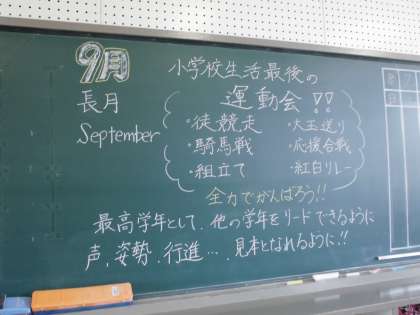 9月
長月
September
小学校生活最後の
運動会!!
・徒競走
・大玉送り
・騎馬戦
・応援合戦
・組立て
・紅白リレー
全力でがんばろう!!
最高学年として、他の学年をリードできるように
声、姿勢、行進…、見本となれるように!!